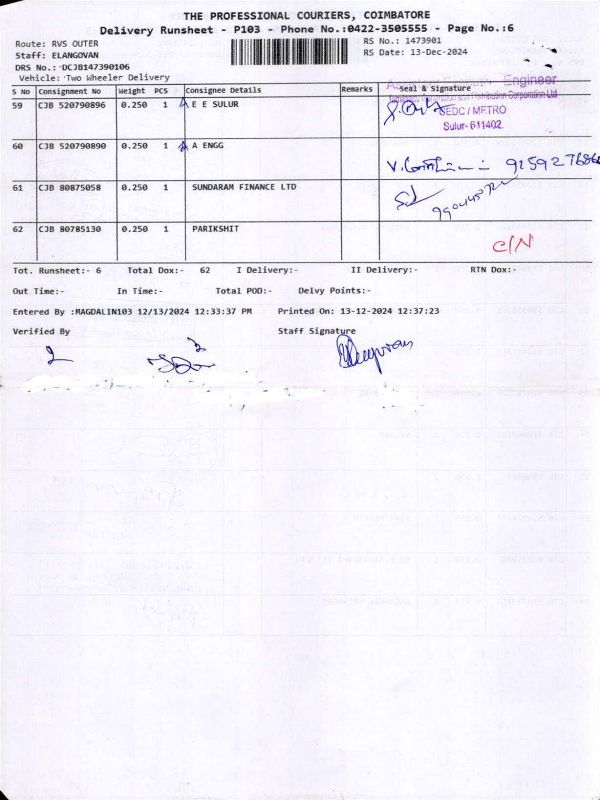 THE PROFESSIONAL COURIERS, COIMBATORE
Delivery Runsheet - P103 - Phone No.:0422-3505555 - Page No.:6
Route: RVS OUTER
RS No.: 1473901
Staff: ELANGOVAN
RS Date: 13-Dec-2024
DRS No.: DCJB147390106
Vehicle: Two Wheeler Delivery
S No Consignment No Weight PCS Consignee Details Remarks Seal & Signature
Engineer
Distribution Corporation Ltd
59 CJB 520790896 0.250 1 A E E SULUR
SEDC / METRO
Sulur- 641402
60 CJB 520790890 0.250 1 A A ENGG
61 CJB 80875058 0.250 1 SUNDARAM FINANCE LTD
62 CJB 80785130 0.250 1 PARIKSHIT
C/N
Tot. Runsheet:- 6 Total Dox:- 62 I Delivery:- II Delivery:- RTN Dox:-
Out Time:- In Time:- Total POD:- Delvy Points:-
Entered By :MAGDALIN103 12/13/2024 12:33:37 PM Printed On: 13-12-2024 12:37:23
Verified By Staff Signature